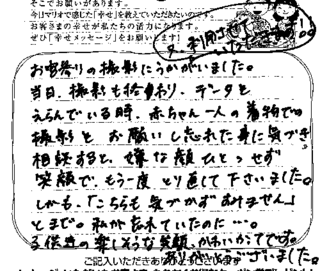 そこでお願いがあります。
今日マリオで感じた「幸せ」を教えていただきたいのです。
お客さまの幸せが私たちの活力になります。
ぜひ「幸せメッセージ」をお願いします!
又、利用させて
いただきます!!
お宮参りの撮影にうかがいました。
当日、撮影も終わり、データを
えらんでいる時、赤ちゃん一人の着物での
撮影をお願いし忘れた事に気づき
相談すると、嫌な顔ひとつせず
笑顔で、もう一度とり直して下さいました。
しかも、「こちらも気づかずすみません」
とまで。私が忘れていたのに…。
子供達の楽しそうな笑顔、かわいかったです。
ありがとうございました。
ご記入いただきありがとうございました